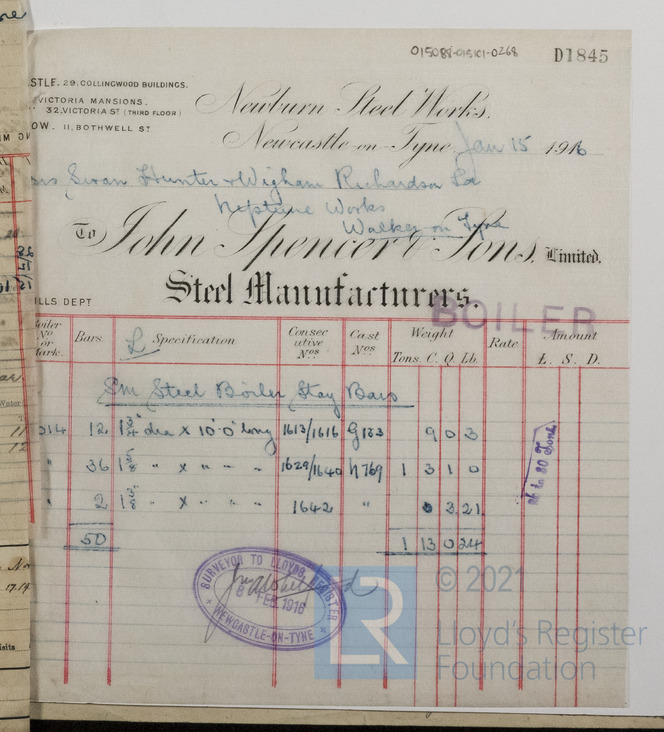 015088-015101-0268
D1845
STLE. 29, COLLINGWOOD BUILDINGS.
VICTORIA MANSIONS.
32, VICTORIA ST (THIRD FLOOR)
OW. 11, BOTHWELL ST
Newburn Steel Works.
Newcastle-on-Tyne, Jan 15 1916
Swan Hunter & Wigham Richardson Ld
Neptune Works
Walker on Tyne
To John Spencer & Sons, Limited.
Steel Manufacturers.
ILLS DEPT
BOILER
Boiler No or Mark. Bars. Specification Consecutive Nos Cast Nos Weight Rate Amount
Tons. C. Q. Lb. £. S. D.
Sm Steel Boiler Stay Bars
12 1 3/4" dia x 10'.0" long 1613/1616 9 0 3
" 36 1 5/8 " x " " " 1629/1640 1 3 1 0
" 2 x " " " 1642 " 3 21
50 1 13 0 24
26 to 30 Tons
SURVEYOR TO LLOYDS REGISTER
8 FEB. 1916
NEWCASTLE-ON-TYNE
LR
© 2021
Lloyd's Register
Foundation